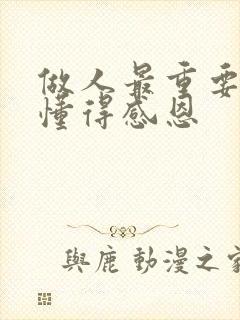 做人最重要
懂得感恩
與鹿 動漫之家